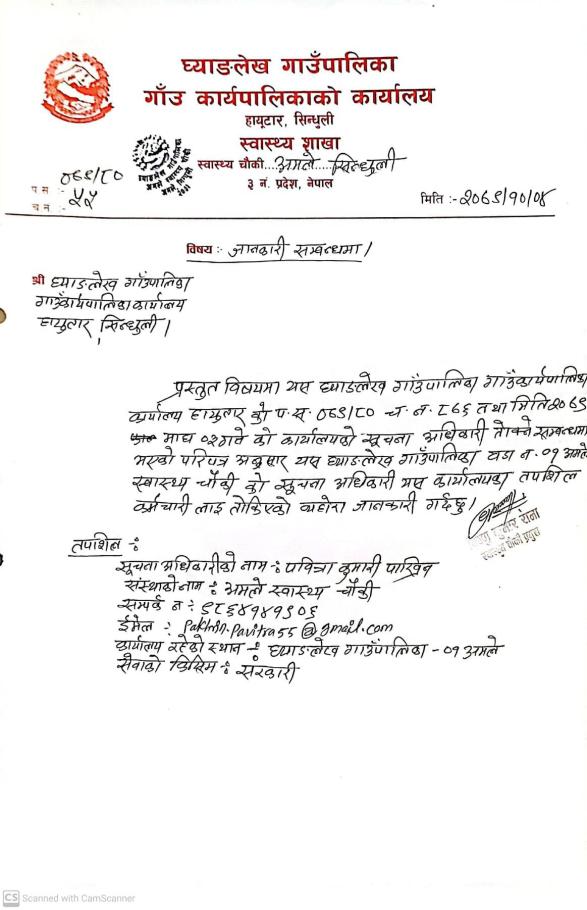 घ्याङलेख गाउँपालिका
गाँउ कार्यपालिकाको कार्यालय
हायूटार, सिन्धुली
स्वास्थ्य शाखा
स्वास्थ्य चौकी...अमले...सिन्धुली
३ नं. प्रदेश, नेपाल
प स :- ०७९/८०
च न :- ५५
मिति :- २०७९/१०/०४
विषय :- जानकारी सम्बन्धमा।
श्री घ्याङलेख गाउँपालिका
गाउँकार्यपालिका कार्यालय
हायुटार, सिन्धुली।
प्रस्तुत विषयमा यस घ्याङलेख गाउँपालिका गाउँकार्यपालिका
कार्यालय हायुटार को प. स. ०७९/८० च. न. ८६६ तथा मिति २०७९
माघ ०२ गते को कार्यालयको सूचना अधिकारी तोक्ने सम्बन्धमा
भएको परिपत्र अनुसार यस घ्याङलेख गाउँपालिका वडा न. ०१ अमले
स्वास्थ्य चौकी को सूचना अधिकारी यस कार्यालयका तपशिल
कर्मचारी लाई तोकिएको व्यहोरा जानकारी गर्दछु।
कुमार राना
स्वास्थ्य चौकी प्रमुख
तपशिल :-
सूचना अधिकारीको नाम :- पवित्रा कुमारी पाख्रिन
संस्थाको नाम :- अमले स्वास्थ्य चौकी
सम्पर्क न :- ९८६४१४१९०६
ईमेल :- Pakhrin.Pavitra55@gmail.com
कार्यालय रहेको स्थान :- घ्याङलेख गाउँपालिका - ०१ अमले
सेवाको किसिम :- सरकारी
CS Scanned with CamScanner